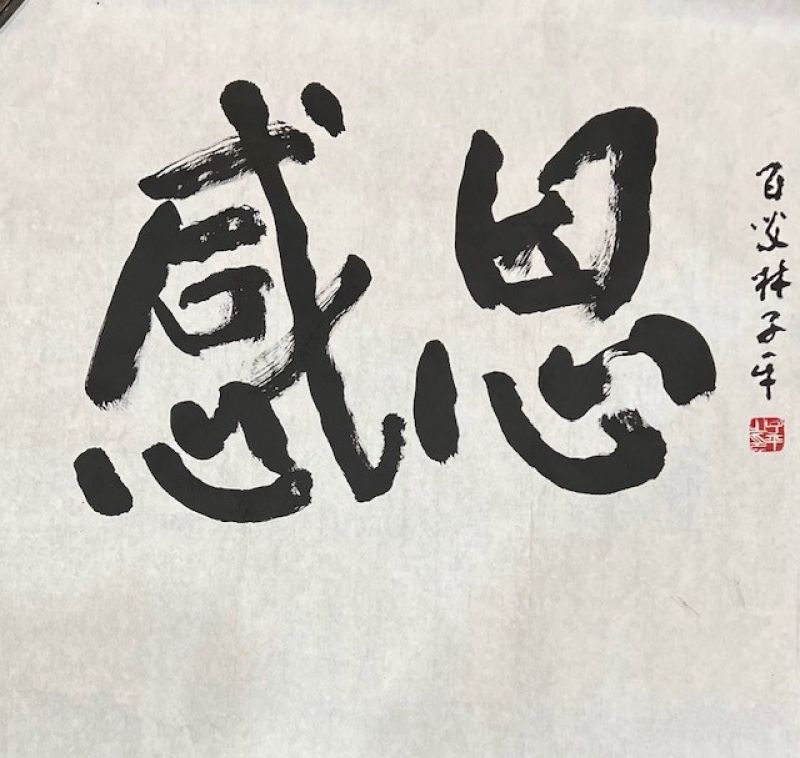 感恩
百歲林子平